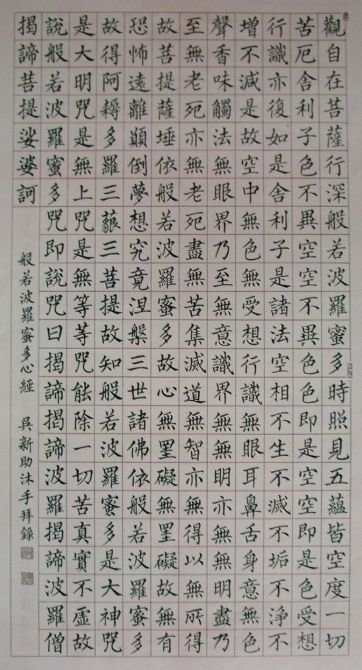 觀自在菩薩行深般若波羅蜜多時照見五蘊皆空度一切
苦厄舍利子色不異空空不異色色即是空空即是色受想
行識亦復如是舍利子是諸法空相不生不滅不垢不淨不
增不減是故空中無色無受想行識無眼耳鼻舌身意無色
聲香味觸法無眼界乃至無意識界無無明亦無無明盡乃
至無老死亦無老死盡無苦集滅道無智亦無得以無所得
故菩提薩埵依般若波羅蜜多故心無罣礙無罣礙故無有
恐怖遠離顛倒夢想究竟涅槃三世諸佛依般若波羅蜜多
故得阿耨多羅三藐三菩提故知般若波羅蜜多是大神咒
是大明咒是無上咒是無等等咒能除一切苦真實不虛故
說般若波羅蜜多咒即說咒曰揭諦揭諦波羅揭諦波羅僧
揭諦菩提娑婆訶
般若波羅蜜多心經 吳新助沐手拜錄